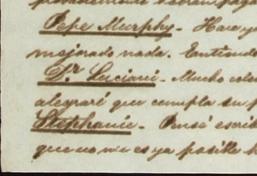 Pepe Murphy - Hace y
mejorado nada. Entiend
Dr Luciani - Mucho cele
alegraré que cumpla su p
Stephanie - Pensé escrib
que no me es ya posible h